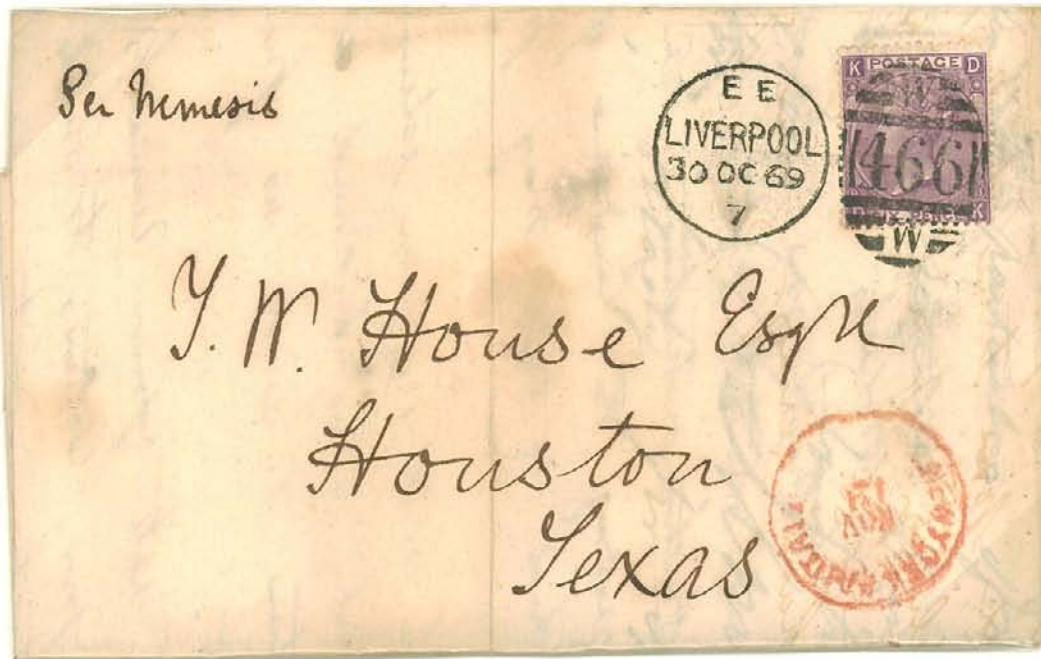 Per Nemesis
E E
LIVERPOOL
30 OC 69
7
K POSTAGE D
W
466
SIX PENCE K
W
T. W. House Esqre
Houston
Texas
NEW YORK
NOV
PAID ALL